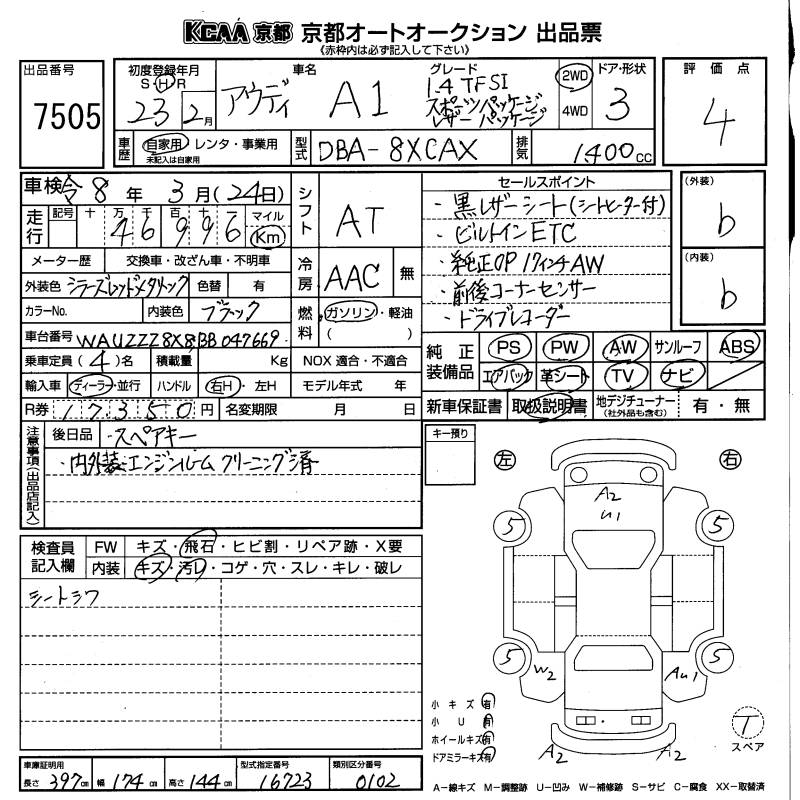 KCAA 京都 京都オートオークション 出品票
《赤枠内は必ず記入して下さい》
出品番号
7505
初度登録年月
S H R
23年 2月
車名
アウディ A1
グレード
1.4 TFSI
スポーツパッケージ
レザーパッケージ
2WD
4WD
ドア・形状
3
評価点
4
車歴
自家用・レンタ・事業用
未記入は自家用
型式
DBA-8XCAX
排気
1400cc
車検 令8年 3月(24日)
走行
記号 十 万 千 百 十 一 マイル
4 6 9 9 6 Km
シフト
AT
メーター歴 交換車・改ざん車・不明車
外装色 シラーズレッドメタリック 色替 有
冷房
AAC 無
カラーNo. 内装色 ブラック
燃料
ガソリン・軽油
( )
車台番号 WAUZZZ8X8BB047669
乗車定員 (4)名 積載量 Kg NOX 適合・不適合
輸入車 ディーラー・並行 ハンドル 右H・左H モデル年式 年
R券 17350円 名変期限 月 日
セールスポイント
・黒レザーシート(シートヒーター付)
・ビルトインETC
・純正OP 17インチAW
・前後コーナーセンサー
・ドライブレコーダー
(外装)
b
(内装)
b
純正装備品
PS PW AW サンルーフ ABS
エアバック 革シート TV ナビ
新車保証書 取扱説明書 地デジチューナー 有・無
(社外品も含む)
注意事項(出品店記入)
後日品 ・スペアキー
・内外装、エンジンルーム クリーニング済
キー預り
検査員記入欄
FW キズ・飛石・ヒビ割・リペア跡・X要
内装 キズ・汚レ・コゲ・穴・スレ・キレ・破レ
シートシワ
左 右
A2
U1
5 5
5 5
W2 AU1
A2 A2
小キズ有
小U有
ホイールキズ有
ドアミラーキズ有
T
スペア
車庫証明用
長さ 397cm 幅 174cm 高さ 144cm
型式指定番号
16723
類別区分番号
0102
A-線キズ M-調整跡 U-凹み W-補修跡 S-サビ C-腐食 XX-取替済